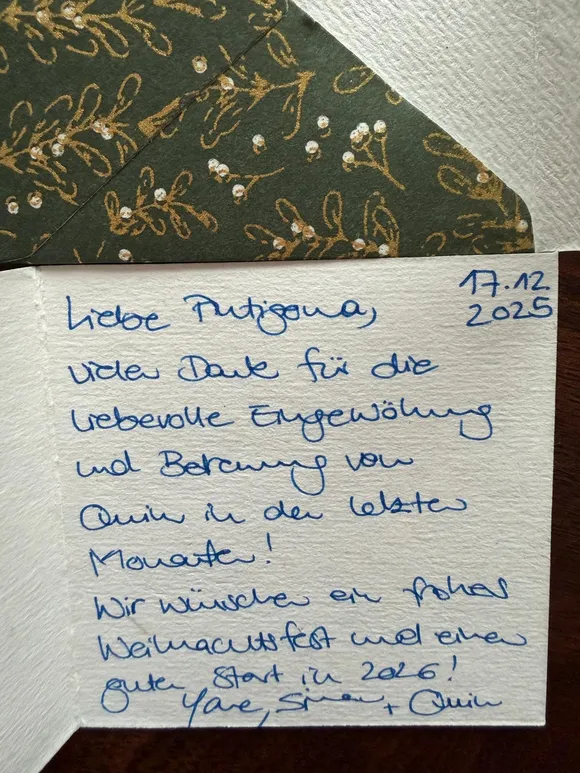 17.12
2025
Liebe
vielen Dank für die
liebevolle Eingewöhnung
und Betreuung von
Quin in den letzten
Monaten!
Wir wünschen ein frohes
Weihnachtsfest und einen
guten Start in 2026!
+ Quin